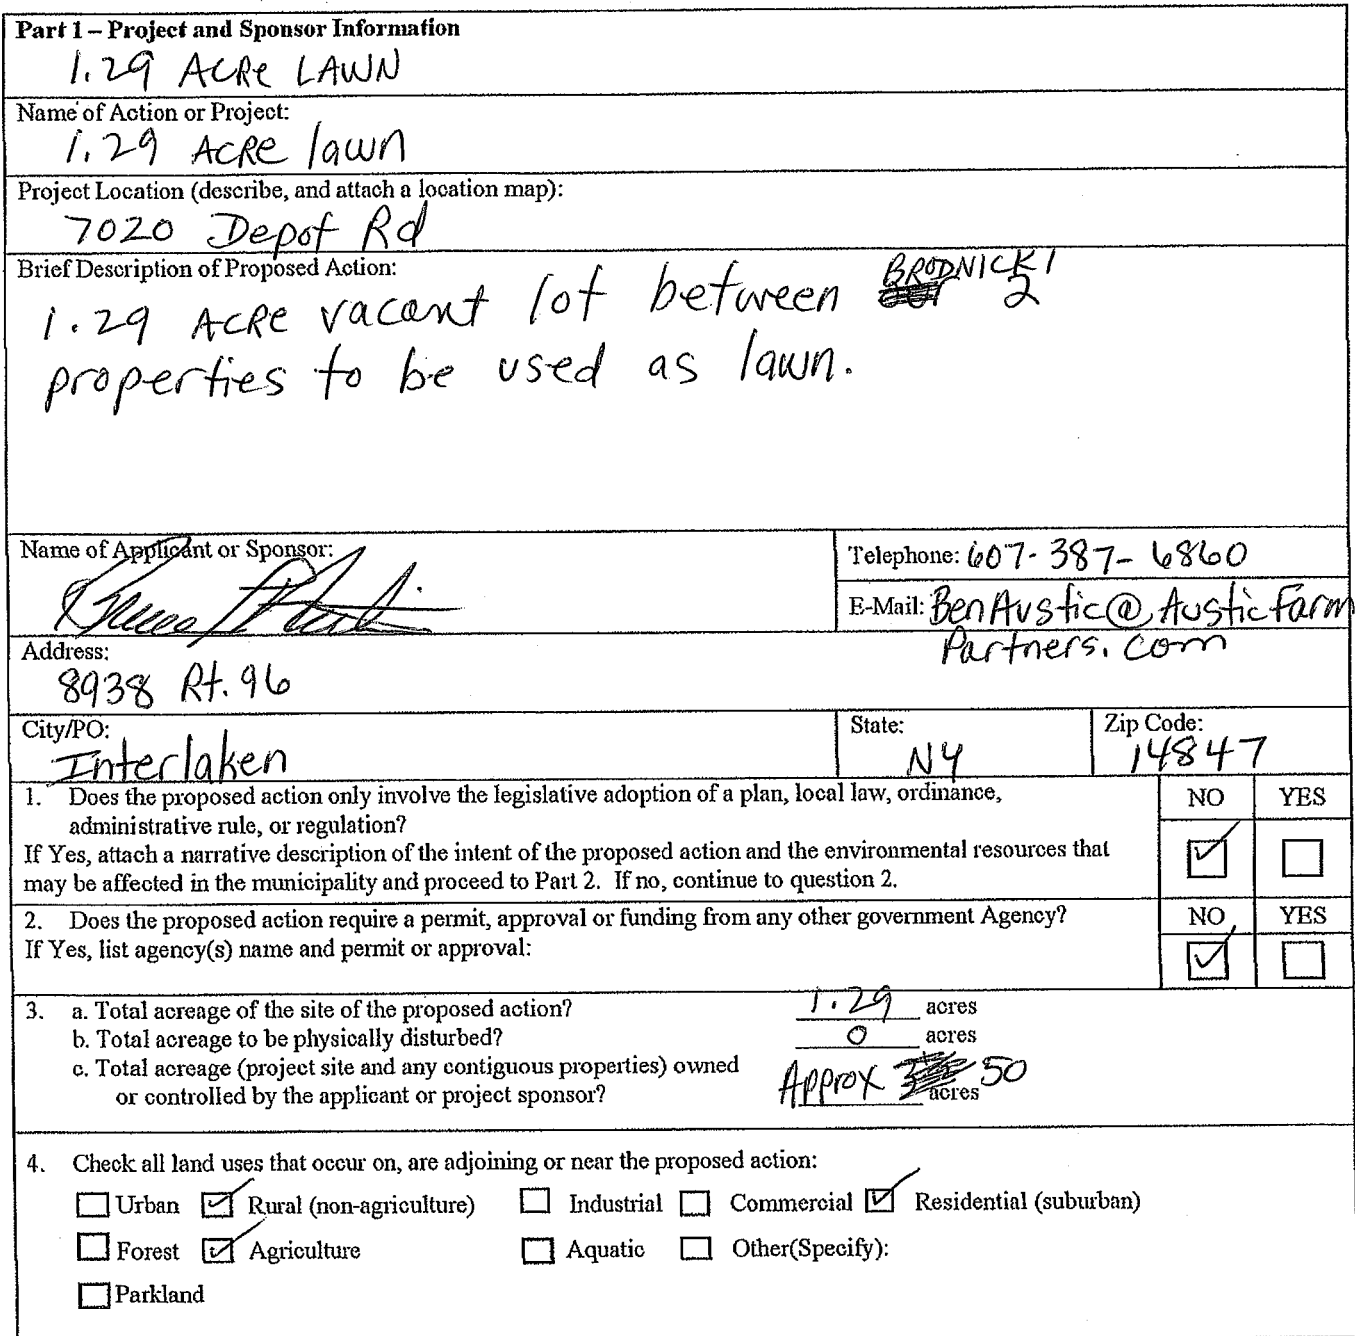 Part 1 – Project and Sponsor Information
1.29 ACRe LAWN
Name of Action or Project:
1.29 ACRe lawn
Project Location (describe, and attach a location map):
7020 Depot Rd
Brief Description of Proposed Action:
1.29 ACRe vacant lot between BRODNICKI 2
properties to be used as lawn.
Name of Applicant or Sponsor:
Telephone: 607-387-6860
E-Mail: BenAustic@AusticFarm
Partners.com
Address:
8938 Rt. 96
City/PO:
Interlaken
State:
NY
Zip Code:
14847
1. Does the proposed action only involve the legislative adoption of a plan, local law, ordinance,
administrative rule, or regulation?
If Yes, attach a narrative description of the intent of the proposed action and the environmental resources that
may be affected in the municipality and proceed to Part 2. If no, continue to question 2.
NO YES
2. Does the proposed action require a permit, approval or funding from any other government Agency?
If Yes, list agency(s) name and permit or approval:
NO YES
3. a. Total acreage of the site of the proposed action? 1.29 acres
b. Total acreage to be physically disturbed? 0 acres
c. Total acreage (project site and any contiguous properties) owned
or controlled by the applicant or project sponsor? Approx 50 acres
4. Check all land uses that occur on, are adjoining or near the proposed action:
Urban Rural (non-agriculture) Industrial Commercial Residential (suburban)
Forest Agriculture Aquatic Other(Specify):
Parkland